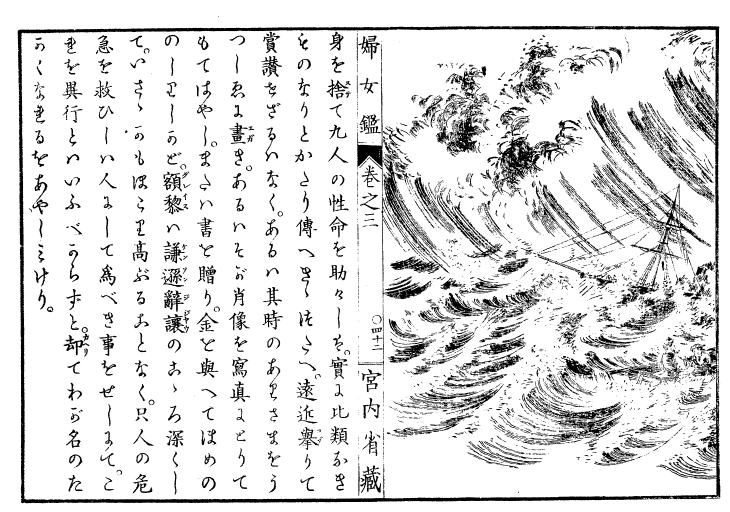 婦女鑑 巻之三 〇四十二 宮内省藏
身を捨て九人の性命を助けしは。實に比類なき
ものなりとかたり傳へきゝつたへ。遠近擧りて
賞讃せざるハなく。あるハ其時のありさまをう
つしゑに畫き。あるハそが肖像を寫真にとりて
もてはやし。またハ書を贈り。金を與へてほめの
のしりしかど。額黎ハ謙遜辭讓のこゝろ深くし
て。いさゝかもほこり高ぶることなく。只人の危
急を救ひしハ人にして為べき事をせしまで。こ
れを異行とハいふべからずと。却てわが名のた
かくなれるをあやしミけり。